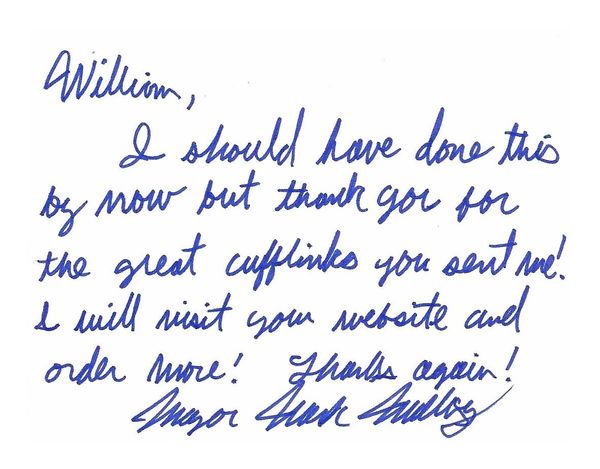 William,
I should have done this
by now but thank you for
the great cufflinks you sent me!
I will visit your website and
order more! Thanks again!
Mayor Mark Mallory